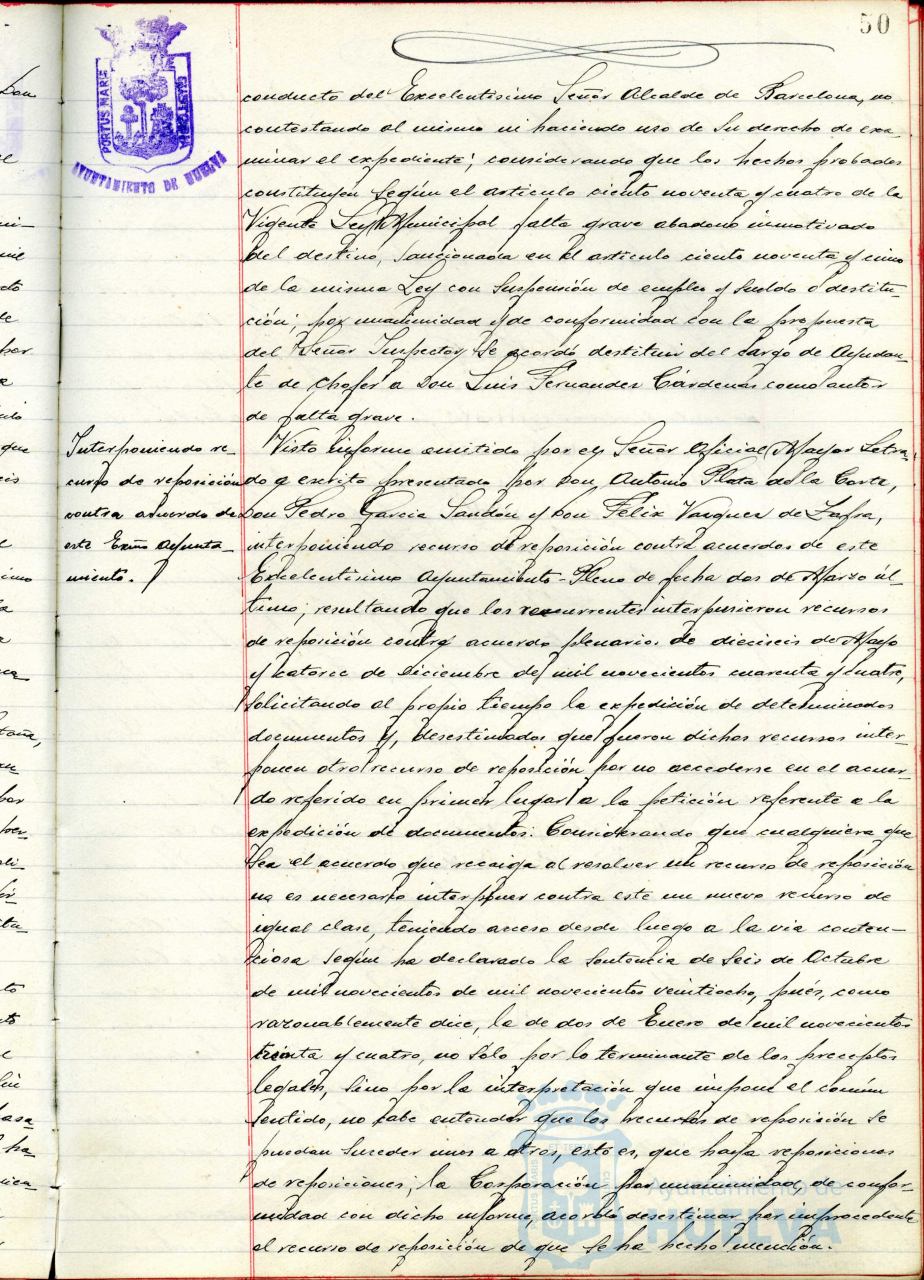 50
PORTUS MARIS
AYUNTAMIENTO DE HUELVA
conducto del Excelentísimo Señor Alcalde de Barcelona, no
contestando al mismo ni haciendo uso de su derecho de exa-
minar el expediente; considerando que los hechos probados
constituyen según el artículo ciento noventa y cuatro de la
Vigente Ley Municipal falta grave abadono inmotivado
del destino, sancionada en el artículo ciento noventa y cinco
de la misma Ley con suspensión de empleo y sueldo o destitu-
ción; por unanimidad y de conformidad con la propuesta
del Señor Inspector, se acordó destituir del cargo de Ayudan-
te de chofer a Don Luis Fernandez Cárdenas como autor
de falta grave.
Interponiendo re-
curso de reposición
contra acuerdo de
este Excmo Ayunta-
miento.
Visto informe emitido por el Señor Oficial Mayor Letra-
do a escrito presentado por Don Antonio Plata de la Corte,
Don Pedro Garcia Sandón y Don Félix Vazquez de Zafra,
interponiendo recurso de reposición contra acuerdos de este
Excelentísimo Ayuntamiento-Pleno de fecha dos de Marzo úl-
timo; resultando que los recurrentes interpusieron recursos
de reposición contra acuerdo plenarios de dieciseis de Mayo
y catorce de Diciembre de mil novecientos cuarenta y cuatro,
solicitando al propio tiempo la expedición de determinados
documentos y, desestimados que fueron dichos recursos inter-
ponen otro recurso de reposición por no accederse en el acuer-
do referido en primer lugar a la petición referente a la
expedición de documentos. Considerando que cualquiera que
sea el acuerdo que recaiga al resolver un recurso de reposición
no es necesario interponer contra este un nuevo recurso de
igual clase, teniendo acceso desde luego a la via conten-
ciosa según ha declarado la Sentencia de seis de Octubre
de mil novecientos de mil novecientos veintiocho, pués, como
razonablemente dice, la de dos de Enero de mil novecientos
treinta y cuatro, no sólo por lo terminante de los preceptos
legales, sino por la interpretación que impone el común
sentido, no cabe entender que los recursos de reposición se
puedan suceder unos a otros, esto es, que haya reposiciones
de reposiciones; la Corporación por unanimidad, de confor-
midad con dicho informe, acordó desestimar por improcedente
el recurso de reposición de que se ha hecho mención.
Ayuntamiento de
HUELVA